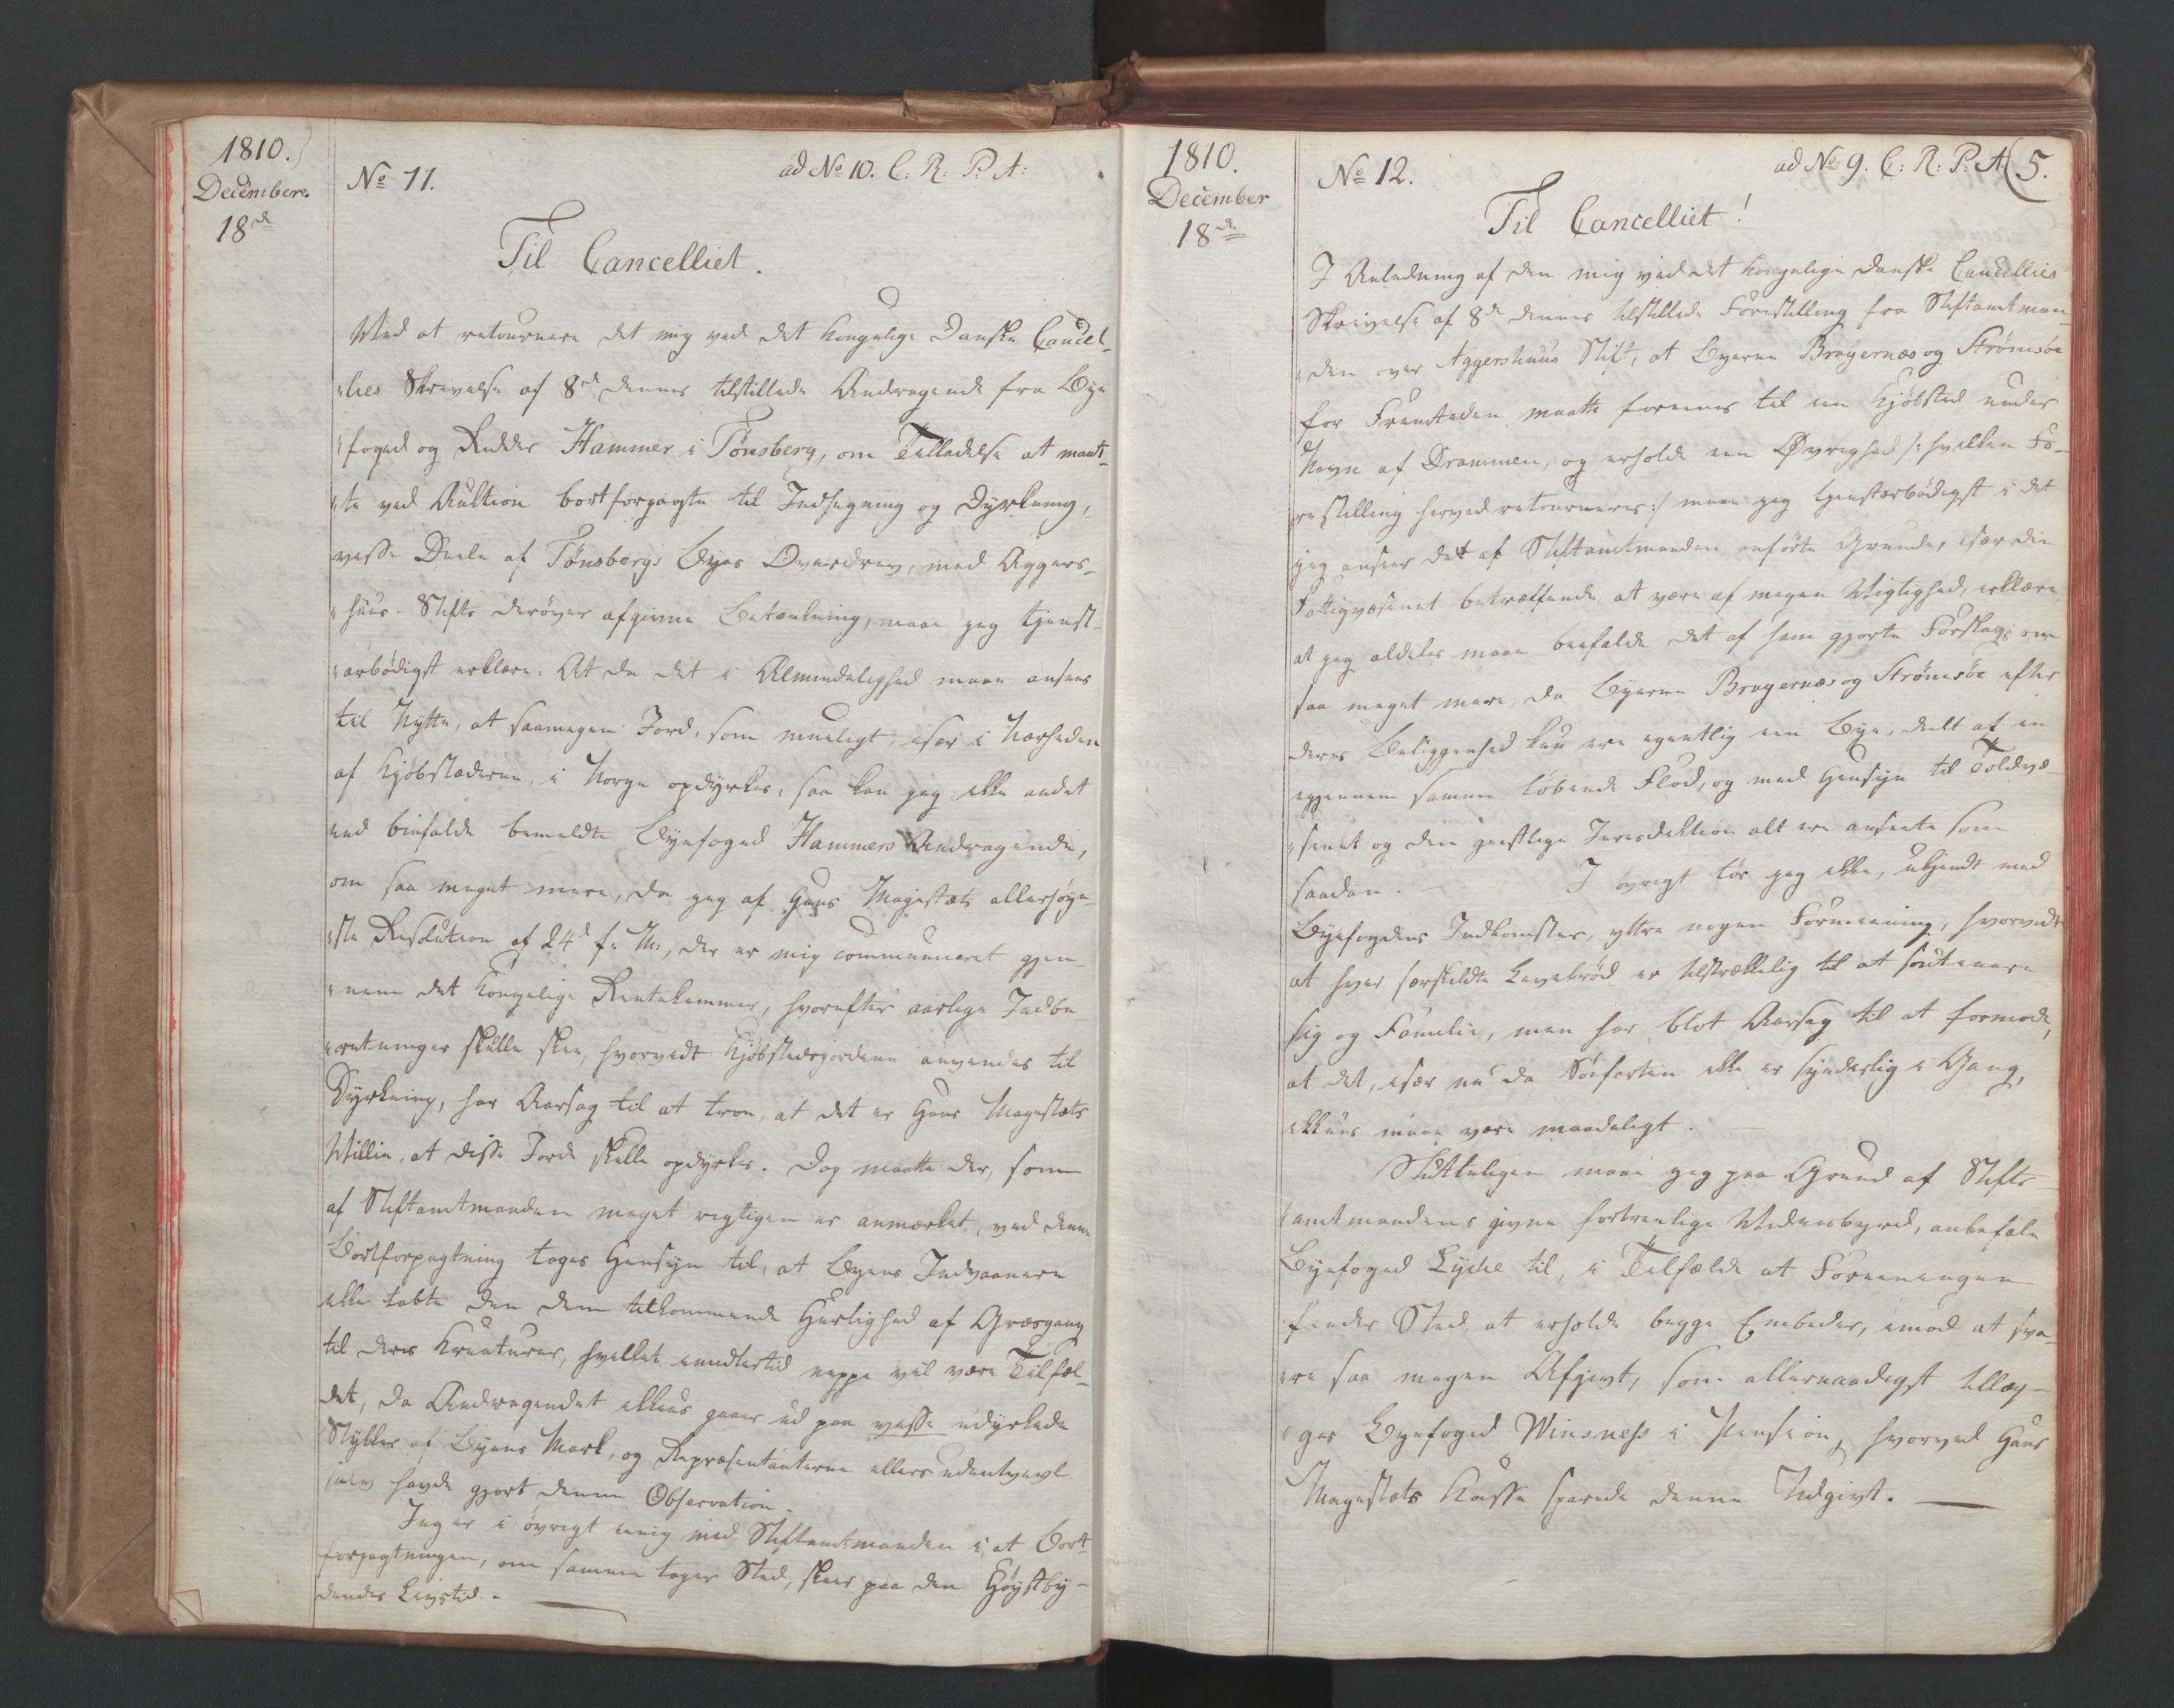 1810.
Decembere.
18de
No 11.
ad No 10. C: R: P: A:
Til Cancelliet.
Ved at retournere det mig ved det Kongelige Danske Cancel-
lies Skrivelse af 8de dennes tilstillede Andragende fra Bye
foged og Ridder Hammer i Tønsberg, om Tilladelse at maat-
te ved Auktion bortforpagte til Indhegning og Dyrkning,
visse Deele af Tønsbergs Byes Overdrev, med Aggers-
huus-Stifts derøver afgivne Betænkning, maae jeg tjenst-
ærbødigst erklære: At da det i Almindelighed maae ansees
til Nytte, at saamegen Jord, som mueligt, især i Nærheden
af Kjøbstæderne, i Norge opdyrkes, saa kan jeg ikke andet
end biefalde bemeldte Byefoged Hammers Andragende,
om saa meget mere, da jeg af Hans Majestæts allerhøye-
ste Resolution af 24d f: M:, der er mig communiceret gjen-
nem det Kongelige Rentekammer, hvorefter aarlige Indbe-
retninger skulle skee, hvorvidt Kjøbstedsjordene anvendes til
Dyrkning, har Aarsag til at troe, at det er Hans Majestæts
Villie, at disse Jorde skulle opdyrkes. Dog maatte der, som
af Stiftamtmanden meget rigtigen er anmærket, ved denne
Bortforpagtning tages Hensyn til, at Byens Indvaanere
ikke tabte den dem tilkommende Herlighed af Græsgang
til deres Kreaturer, hvilket imidlertid neppe vil være Tilfæl-
det, da Andragendet ikkuns gaaer ud paa visse udyrkede
Stykker af Byens Mark, og Repræsentanterne ellers udentvivl
selv havde gjort denne Observation.
Jeg er i øvrigt eenig med Stiftamtmanden i, at Bort-
forpagtningen, om samme tager Sted, skeer paa den Høystby-
dendes Livstid.
1810.
December
18de
No 12.
ad No 9. C: R: P: A: (5.
Til Cancelliet!
I Anledning af den mig ved det Kongelige Danske Cancellies
Skrivelse af 8de dennes tilstillede Forestilling fra Stiftamtman-
den over Aggershuus Stift, at Byerne Bragernæs og Strømsøe
for Fremtiden maatte forenes til een Kjøbsted under
Navn af Drammen, og erholde een Øvrighed /: hvilken Fo-
restilling herved retourneres :/ maae jeg tjenstærbødigst i det
jeg anseer det af Stiftamtmanden anførte Grunde, især den
Fattigvæsenet betræffende, at være af megen Vigtighed, erklære
at jeg aldeles maae biefalde det af ham gjorte Forslag; om
saa meget mere, da Byerne Bragernæs og Strømsøe efter
deres Beliggenhed kun ere egentlig een Bye, deelt af en
igjennem samme løbende Flod, og med Hensyn til Toldvæ-
senet og den geistlige Jurisdiktion alt ere ansete som
saadan. - I øvrigt tør jeg ikke, ukjendt med
Byefogdens Indkomster, yttre nogen Formeening, hvorvidt
at hver særskildte Levebrød er tilstrækkelig til at soutenere
sig og Familie, men har blot Aarsag til at formode,
at det, især nu da Søefarten ikke er synderlig i Gang,
ikkuns maae være maadeligt.
Slutteligen maae jeg paa Grund af Stifts-
amtmandens givne fortrinlige Vidnesbyrd, anbefale
Byefoged Lyche til, i Tilfælde at Foreeningen
finder Sted, at erholde begge Embeder, imod at sva-
re saa megen Afgivt, som allernaadigst tillæg-
ges Byefoged Winsness i Pension, hvorved Hans
Majestæts Kasse sparede denne Udgivt.